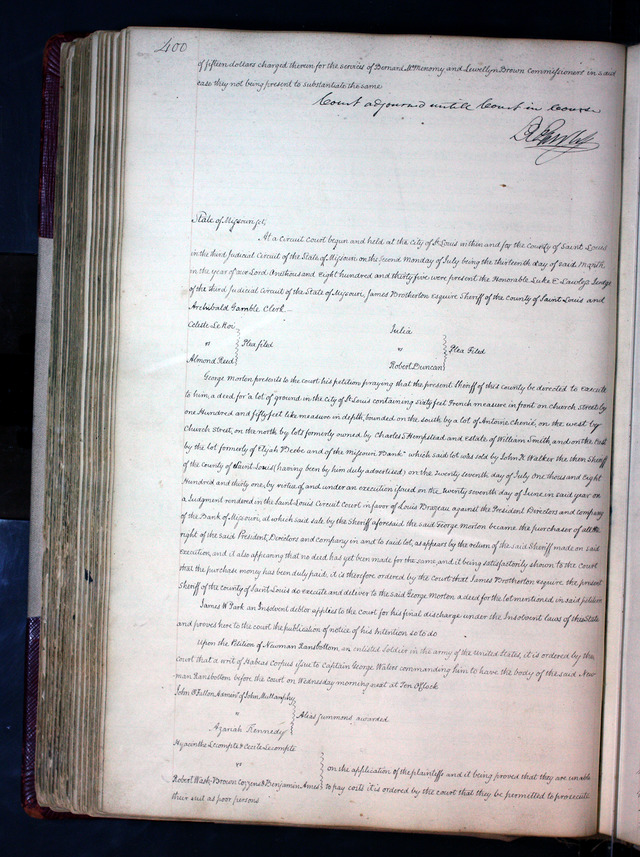 400
of fifteen dollars charged therein for the services of Bernard McMenomy and Lewellyn Brown Commissioners in said
case they not being present to substantiate the same
Court adjourned untill Court in Course
State of Missouri sct,
At a Circuit court begun and held at the City of St Louis within and for the County of Saint Louis
in the third Judicial Circuit of the State of Missouri on the Second Monday of July being the thirteenth day of said Month,
in the year of our Lord One thousand and Eight hundred and thirty five were present the Honorable Luke E Lawless Judge
of the third Judicial Circuit of the State of Missouri, James Brotherton Esquire Sheriff of the County of Saint Louis and
Archibald Gamble Clerk —
Celeste LeRoi
vs
Almond Reed
Plea filed
Julia
vs
Robert Duncan
Plea Filed
George Morton presents to the court his petition praying that the present Sheriff of this county be directed to execute
to him, a deed for "a lot of ground in the City of St Louis containing sixty feet French measure in front on Church street by
one Hundred and fifty feet like measure in depth, bounded on the south by a lot of Antoine Chenie, on the west by
Church Street, on the north by lots formerly owned by Charles S Hempstead and estate of William Smith, and on the East
by the lot formerly of Elijah Beebe and of the Missouri Bank" which said lot was sold by John K Walker the then Sheriff
of the County of Saint Louis (having been by him duly advertised) on the twenty seventh day of July One thousand and Eight
Hundred and thirty one, by virtue of and under an execution issued on the twenty seventh day of June in said year on
a Judgment rendered in the Saint Louis Circuit Court in favor of Louis Brazeau against the President Directors and Company
of the Bank of Missouri, at which said sale by the Sheriff aforesaid the said George Morton became the purchaser of all the
right of the said President, Directors and company in and to said lot, as appears by the return of the said Sheriff made on said
execution, and it also appearing that no deed has yet been made for the same and it being satisfactorily shown to the Court
that the purchase money has been duly paid, it is therefore ordered by the Court that James Brotherton esquire the present
Sheriff of the county of Saint Louis do execute and deliver to the said George Morton a deed for the lot mentioned in said petition
James W Park an Insolvent debtor applies to the court for his final discharge under the Insolvent laws of the State
and proves here to the court the publication of notice of his Intention so to do
Upon the Petition of Newman Ransbottom, an enlisted Soldier in the army of the United States, it is ordered by the
Court that a writ of Habias Corpus issue to Captain George Waters commanding him to have the body of the said New-
man Ransbottom before the court on Wednesday morning next at Ten O'Clock
John O'Fallon Admr of John Mullanphy
vs
Azariah Kennedy
Alias Summons awarded
Hyacinthe Lecompte & Cecile Lecompte
vs
Robert Wash, Brown Cozzens & Benjamin Ames
on the application of the plaintiffs and it being proved that they are unable
to pay costs it is ordered by the court that they be permitted to prosecute
their suit as poor persons